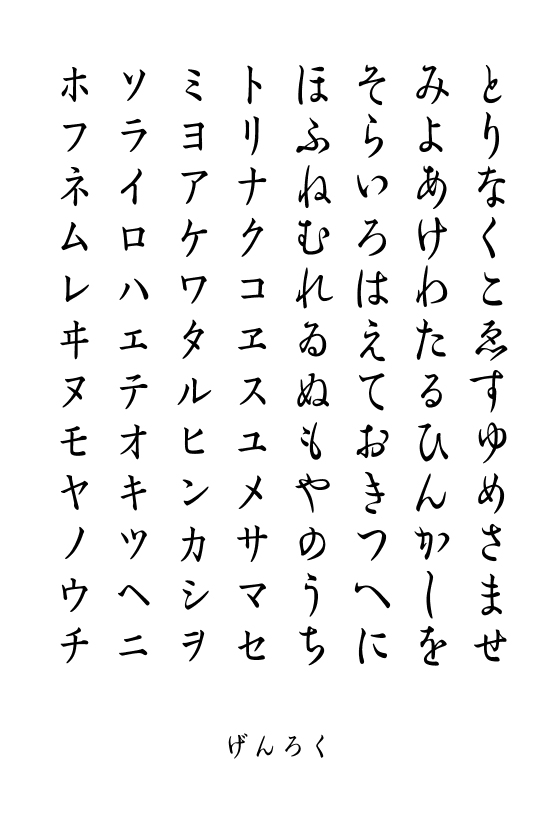 とりなくこゑすゆめさませ
みよあけわたるひんかしを
そらいろはえておきつへに
ほふねむれゐぬもやのうち
トリナクコヱスユメサマセ
ミヨアケワタルヒンカシヲ
ソライロハエテオキツヘニ
ホフネムレヰヌモヤノウチ
げんろく